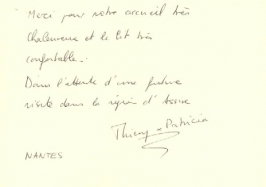 Merci pour votre accueil très
chaleureux et le lit très
confortable.
Dans l'attente d'une future
visite dans la région d'
Thierry - Patricia
NANTES